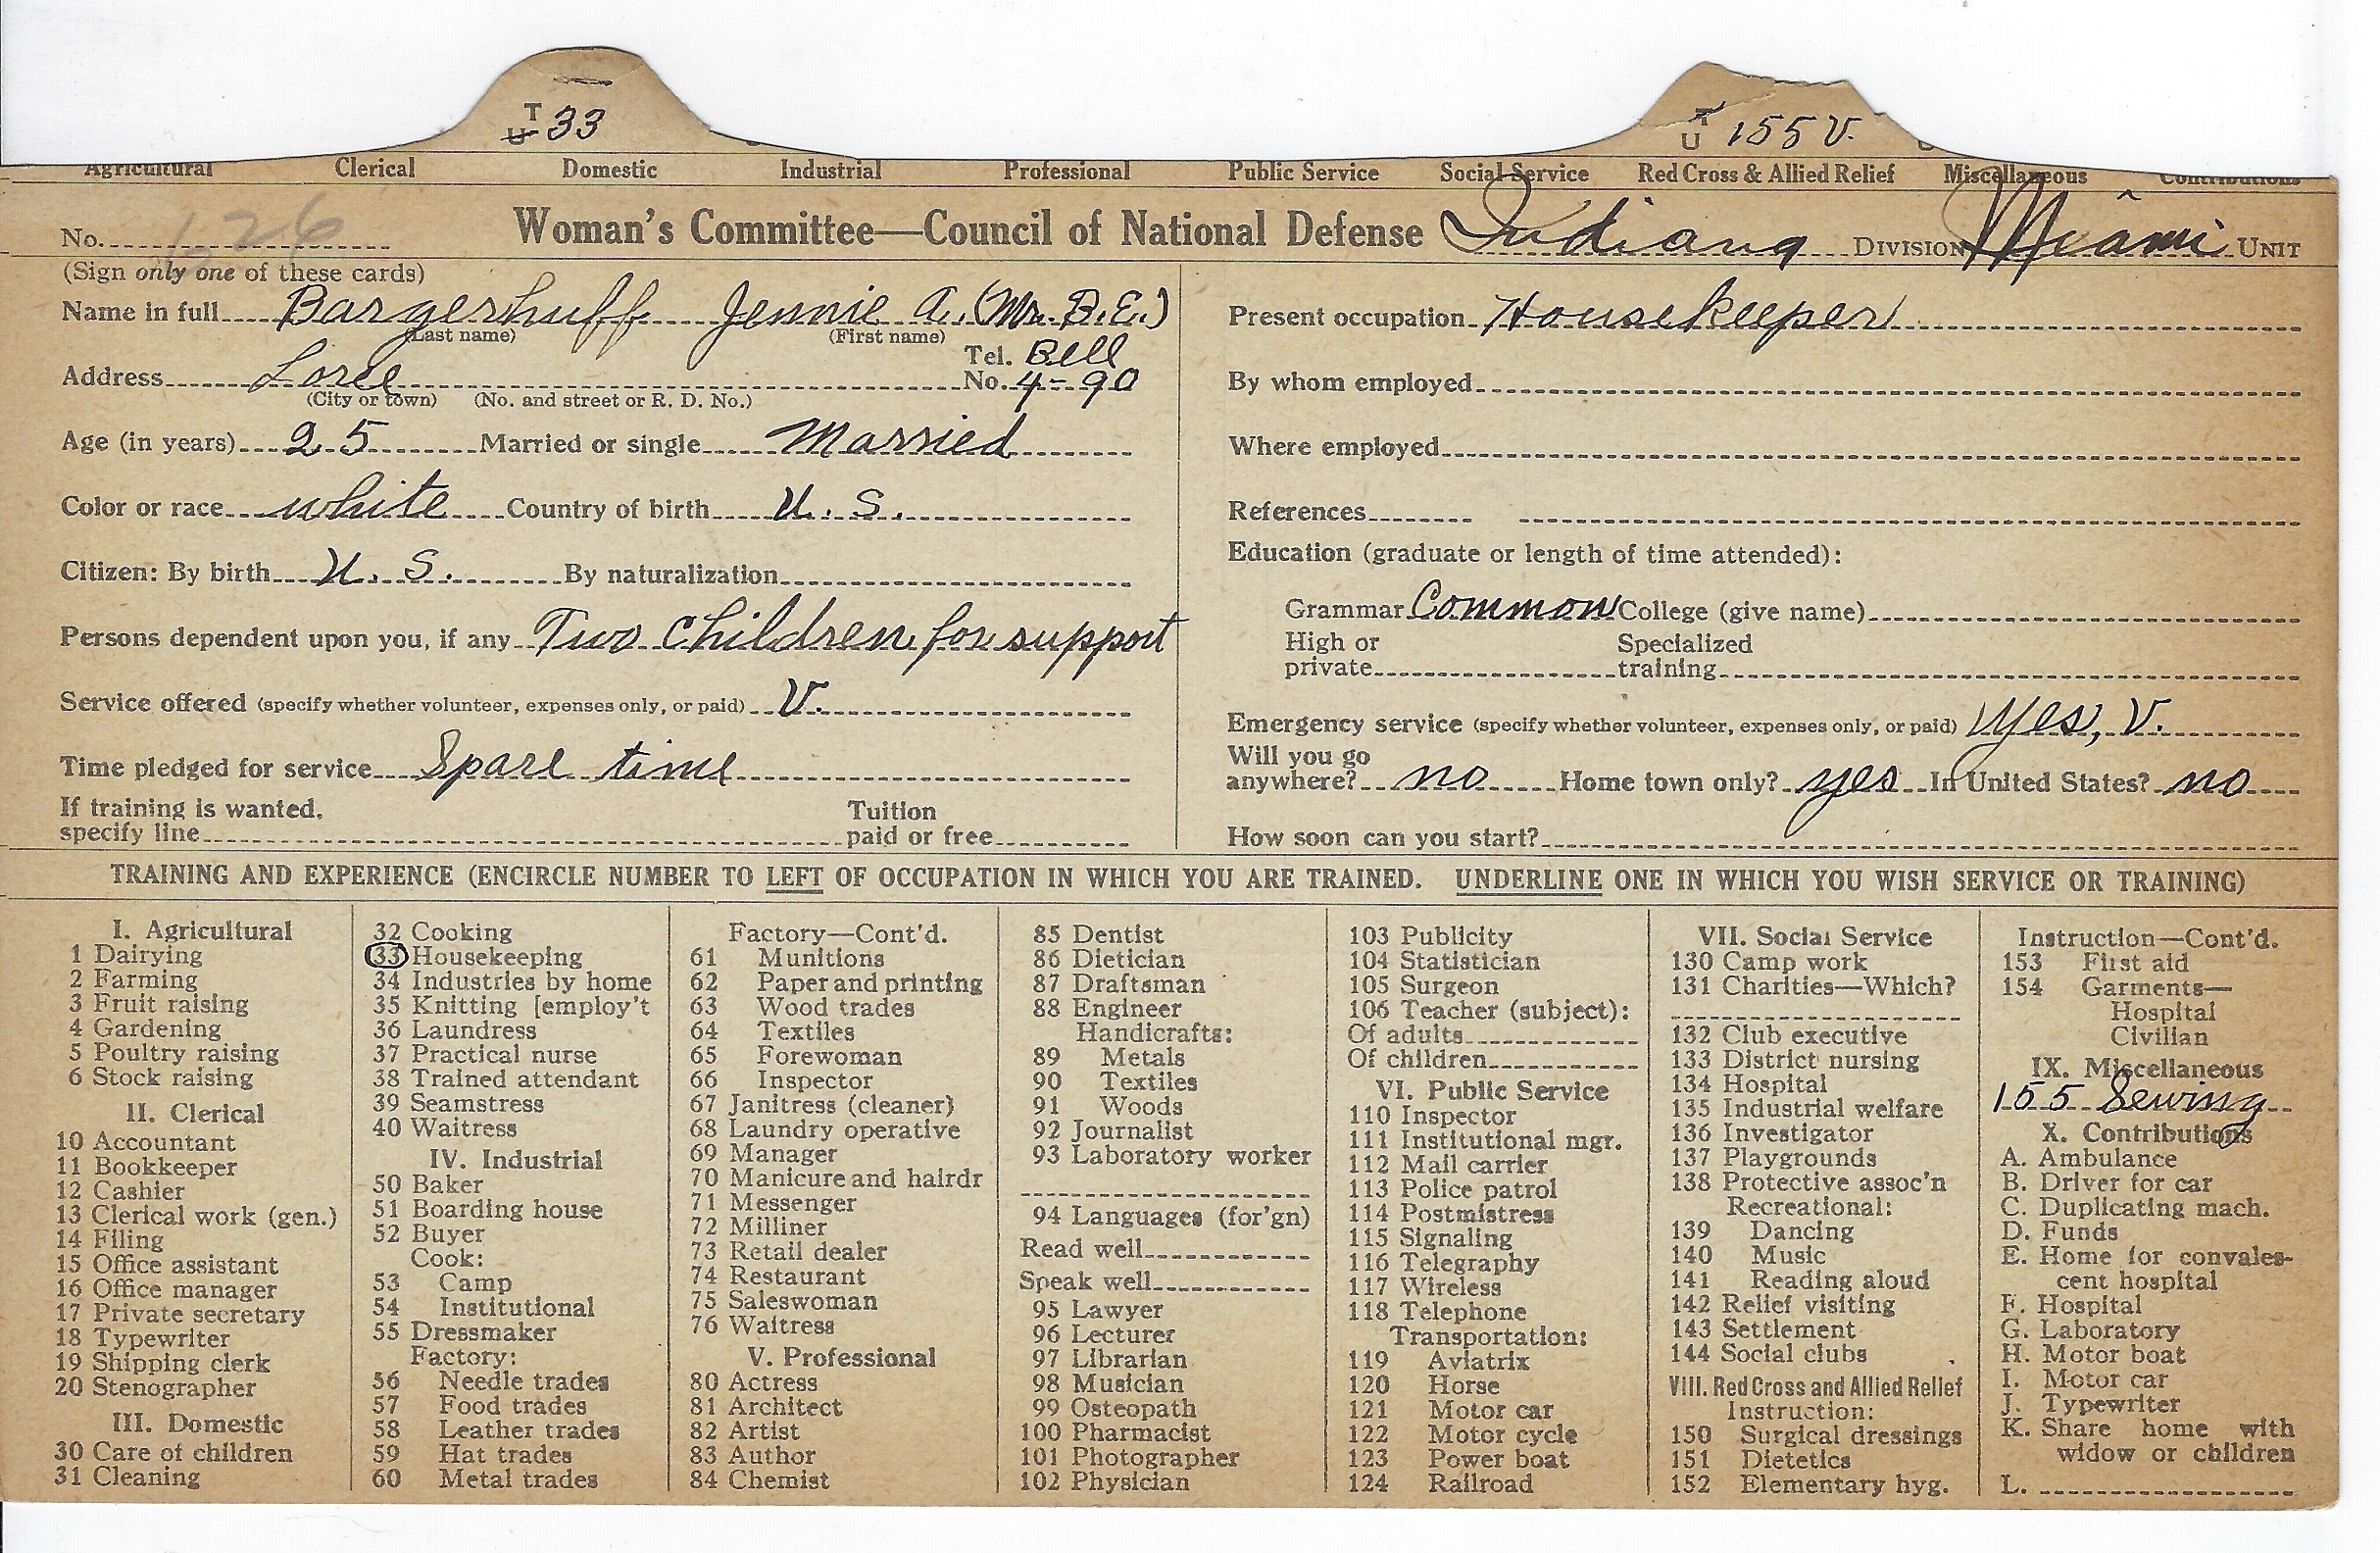 T
U 33
T
U 155 V.
Agricultural Clerical Domestic Industrial Professional Public Service Social Service Red Cross & Allied Relief Miscellaneous Contributions
No. 126 Woman's Committee—Council of National Defense Indiana Division Miami Unit
(Sign only one of these cards)
Name in full Bargerhuff Jennie A. (Mrs. B.E.)
(Last name) (First name)
Address Loree Tel. No. Bell 4-90
(City or town) (No. and street or R. D. No.)
Age (in years) 25 Married or single Married
Color or race white Country of birth U. S.
Citizen: By birth U. S. By naturalization
Persons dependent upon you, if any Two children for support
Service offered (specify whether volunteer, expenses only, or paid) V.
Time pledged for service Spare time
If training is wanted, specify line Tuition paid or free
Present occupation Housekeeper
By whom employed
Where employed
References
Education (graduate or length of time attended):
Grammar Common College (give name)
High or private Specialized training
Emergency service (specify whether volunteer, expenses only, or paid) Yes, V.
Will you go anywhere? no Home town only? yes In United States? no
How soon can you start?
TRAINING AND EXPERIENCE (ENCIRCLE NUMBER TO LEFT OF OCCUPATION IN WHICH YOU ARE TRAINED. UNDERLINE ONE IN WHICH YOU WISH SERVICE OR TRAINING)
I. Agricultural
1 Dairying
2 Farming
3 Fruit raising
4 Gardening
5 Poultry raising
6 Stock raising
II. Clerical
10 Accountant
11 Bookkeeper
12 Cashier
13 Clerical work (gen.)
14 Filing
15 Office assistant
16 Office manager
17 Private secretary
18 Typewriter
19 Shipping clerk
20 Stenographer
III. Domestic
30 Care of children
31 Cleaning
32 Cooking
33 Housekeeping
34 Industries by home
35 Knitting [employ't
36 Laundress
37 Practical nurse
38 Trained attendant
39 Seamstress
40 Waitress
IV. Industrial
50 Baker
51 Boarding house
52 Buyer
Cook:
53 Camp
54 Institutional
55 Dressmaker
Factory:
56 Needle trades
57 Food trades
58 Leather trades
59 Hat trades
60 Metal trades
Factory—Cont'd.
61 Munitions
62 Paper and printing
63 Wood trades
64 Textiles
65 Forewoman
66 Inspector
67 Janitress (cleaner)
68 Laundry operative
69 Manager
70 Manicure and hairdr
71 Messenger
72 Milliner
73 Retail dealer
74 Restaurant
75 Saleswoman
76 Waitress
V. Professional
80 Actress
81 Architect
82 Artist
83 Author
84 Chemist
85 Dentist
86 Dietician
87 Draftsman
88 Engineer
Handicrafts:
89 Metals
90 Textiles
91 Woods
92 Journalist
93 Laboratory worker
94 Languages (for'gn)
Read well
Speak well
95 Lawyer
96 Lecturer
97 Librarian
98 Musician
99 Osteopath
100 Pharmacist
101 Photographer
102 Physician
103 Publicity
104 Statistician
105 Surgeon
106 Teacher (subject):
Of adults
Of children
VI. Public Service
110 Inspector
111 Institutional mgr.
112 Mail carrier
113 Police patrol
114 Postmistress
115 Signaling
116 Telegraphy
117 Wireless
118 Telephone
Transportation:
119 Aviatrix
120 Horse
121 Motor car
122 Motor cycle
123 Power boat
124 Railroad
VII. Social Service
130 Camp work
131 Charities—Which?
132 Club executive
133 District nursing
134 Hospital
135 Industrial welfare
136 Investigator
137 Playgrounds
138 Protective assoc'n
Recreational:
139 Dancing
140 Music
141 Reading aloud
142 Relief visiting
143 Settlement
144 Social clubs
VIII. Red Cross and Allied Relief
Instruction:
150 Surgical dressings
151 Dietetics
152 Elementary hyg.
Instruction—Cont'd.
153 First aid
154 Garments—
Hospital
Civilian
IX. Miscellaneous
155 Sewing
X. Contributions
A. Ambulance
B. Driver for car
C. Duplicating mach.
D. Funds
E. Home for convales-
cent hospital
F. Hospital
G. Laboratory
H. Motor boat
I. Motor car
J. Typewriter
K. Share home with
widow or children
L.